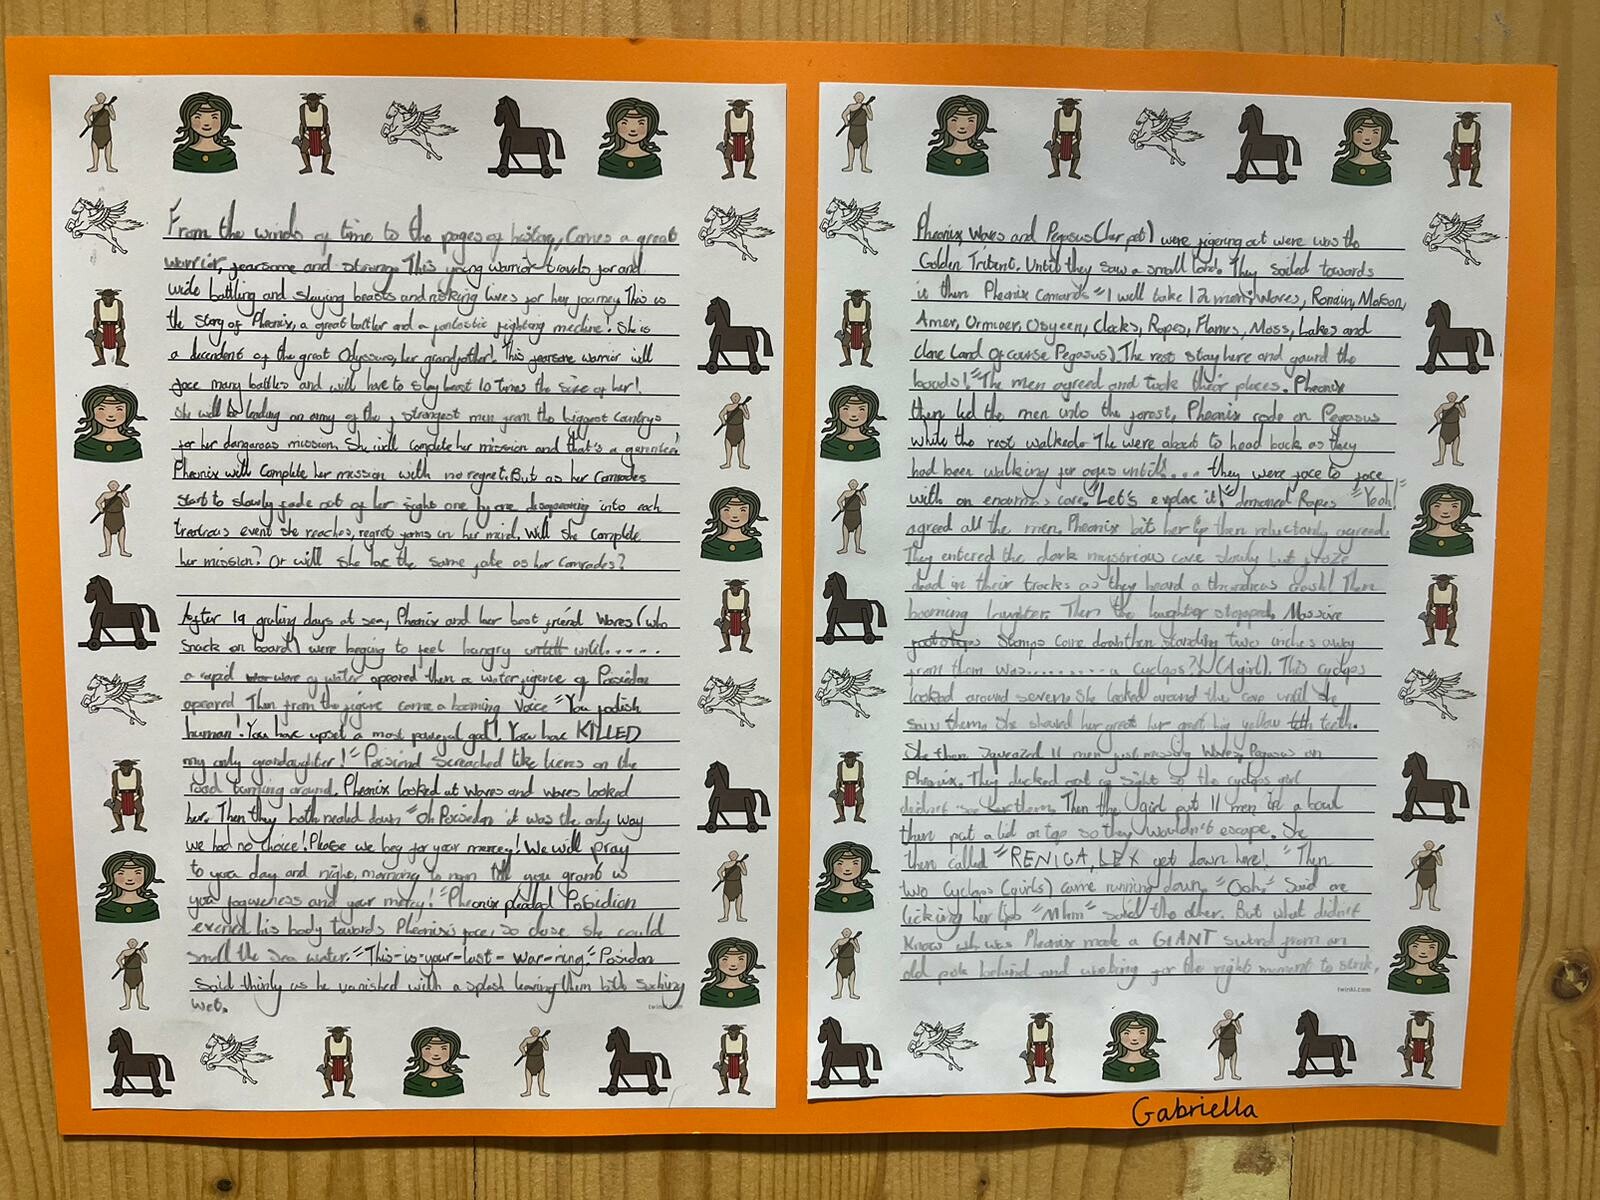 From the winds of time to the pages of history, Comes a great
warrior, fearsome and strong. This young warrior travels far and
wide battling and slaying beasts and risking lives for her journey. This is
the story of Pheonix, a great battler and a fantastic fighting mechine! She is
a decendent of the great Odysseus, her grandfather! This fearsome warrior will
face many battles and will have to slay beast 10 times the size of her!
She will be leading an army of the strongest men from the biggest Countrys
for her dangerous mission. She will complete her mission and that's a garentee!
Pheonix will Complete her mission with no regret. But as her Comrades
start to slowly fade out of her sight one by one, disapearing into each
treatrous event she reaches, regret forms in her mind. Will She Complete
her mission? Or will she face the same fate as her Comrades?
After 19 gruling days at sea, Pheonix and her best friend Waves (who
snuck on board) were beging to feel hungry until.....
a rapid wave of water apeared then a water figure of Posiedon
apeared. Then from the figure came a booming Voice "You foolish
human! You have upset a most powerful god! You have KILLED
my only grandaughter!" Posiend screached like tieres on the
road turning around. Pheonix looked at Waves and waves looked
her. Then they both nealed down "Oh Posiedon it was the only way
we had no choice! Please we beg for your mercy! We will pray
to you day and night, morning to noon till you grant us
you fogiveness and your mercy!" Pheonix pleaded Posidion
his body towards Pheonix's face, so close she could
smell the sea water. "This-is-your-last-war-ning." Posidon
Said thinly as he vanished with a splash leaving them both
wet.
twinkl.com
Pheonix, Waves and Pegasus (her pet) were figering out were was the
Golden Trident. Until they saw a small land. They sailed towards
it then Pheonix comands "I will take 12 men; Waves, Romain,
Amer, Clocks, Ropes, Flames, Moss, Lakes and
(and of course Pegasus). The rest stay here and gaurd the
boads!" The men agreed and took their places. Pheonix
then led the men into the forest, Pheonix rode on Pegasus
while the rest walked. The were about to head back as they
had been walking for ages untill.... they were face to face
with an cave. "Let's explor it!" demaned Ropes "Yeah!"
agreed all the men. Pheonix bit her lip then reluctantly agreed.
They entered the dark mysterious cave slowly but froze
dead in their tracks as they heard a thundrous crash! Then
booming laughter. Then the laughter stopped. Massive
Stomps came down then standing two inches away
from them was......... a cyclops?! (A girl). This cyclops
looked around She looked around the cave until she
saw them. She showed her great her great big yellow teeth.
She then 11 men just missing Waves, Pegasus an
Pheonix. They ducked out of sight so the cyclops girl
didnt see them. Then the girl put 11 men in a bowl
then put a lid on top so they wouldn't escape. She
then called "RENIGA, LEX get down here!" Then
two Cyclops (girls) came running down. "Ooh," Said one
licking her lips "Mhm" said the other. But what didnt
Know was Pheonix made a GIANT sword from an
old pole behind and waiting for the right moment to
twinkl.com
Gabriella